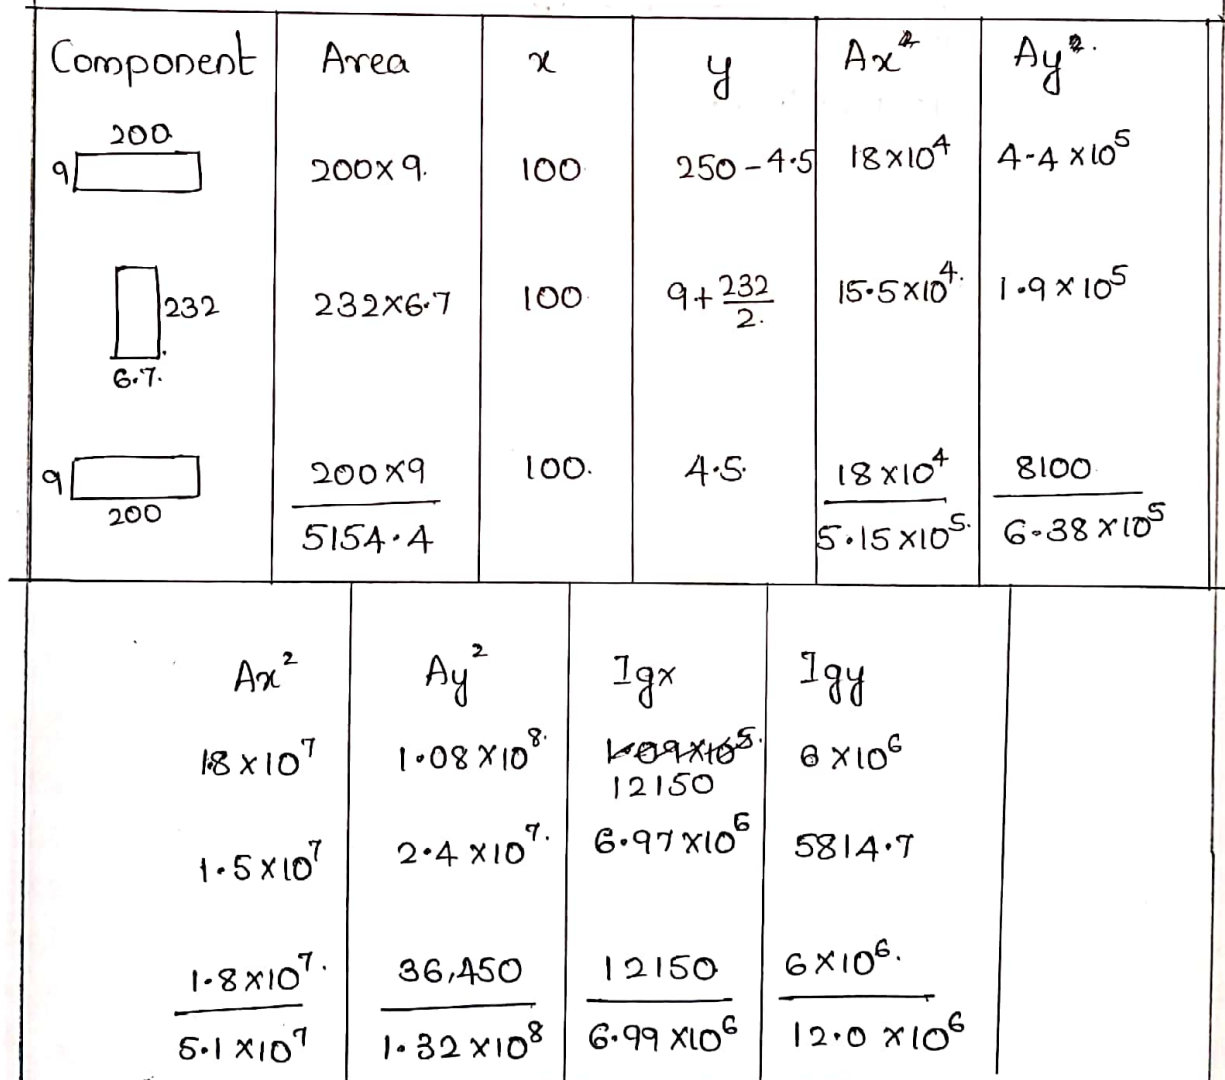 Component Area x y Ax Ay
200
9 200x9. 100 250-4.5 18x10⁴ 4.4x10⁵
232 232x6.7 100 9+232/2. 15.5x10⁴. 1.9x10⁵
6.7.
9 200x9 100. 4.5 18x10⁴ 8100
200
5154.4 5.15x10⁵. 6.38x10⁵
Ax² Ay² Igx Igy
1.8x10⁷ 1.08x10⁸. 12150 6x10⁶
1.5x10⁷ 2.4x10⁷. 6.97x10⁶ 5814.7
1.8x10⁷. 36,450 12150 6x10⁶.
5.1x10⁷ 1.32x10⁸ 6.99x10⁶ 12.0x10⁶